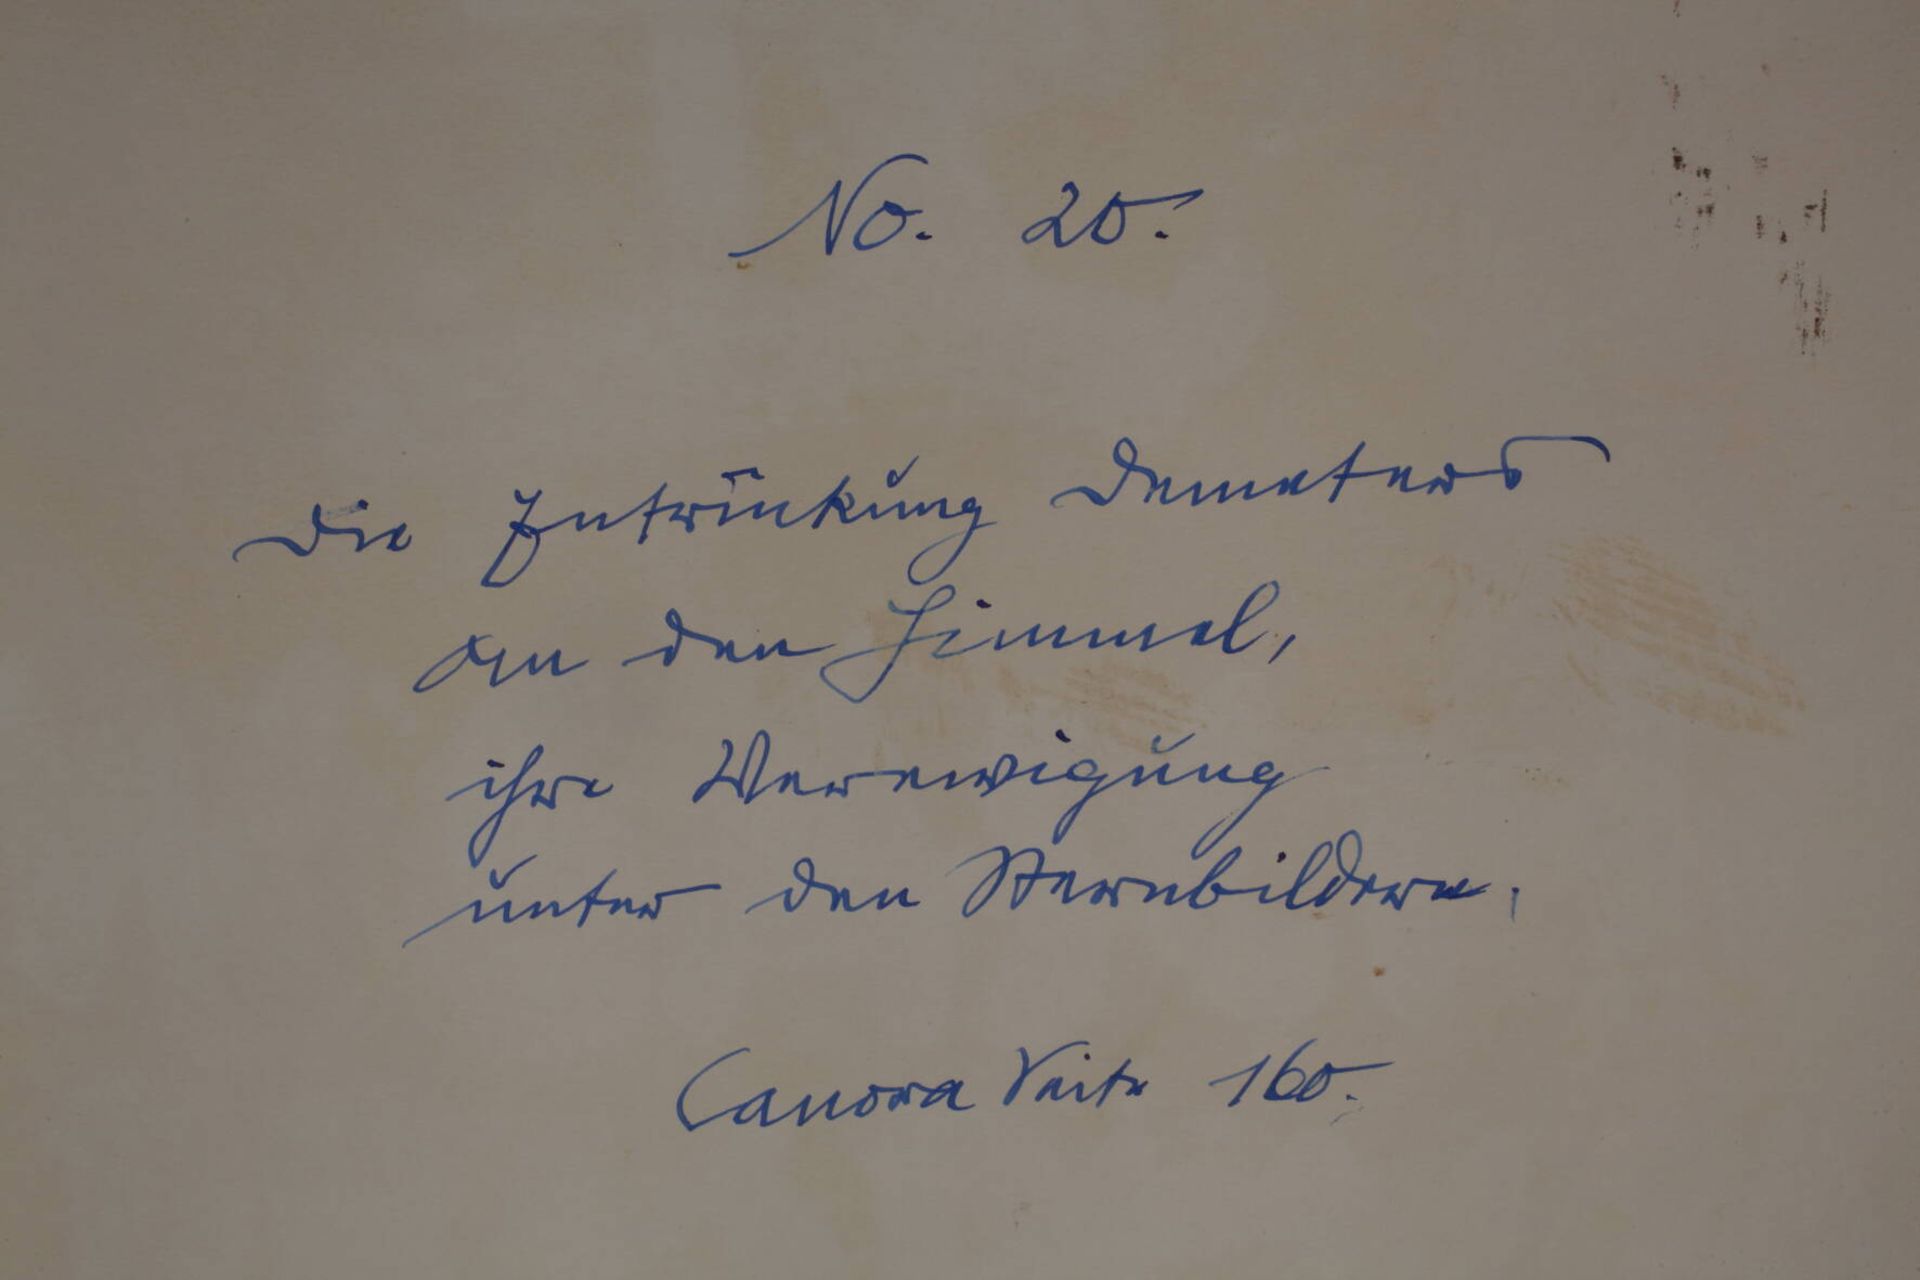 No. 20.
Die Entrückung Demeters
an den Himmel,
ihre Verewigung
unter den Sternbildern.
Canora Seite 160.